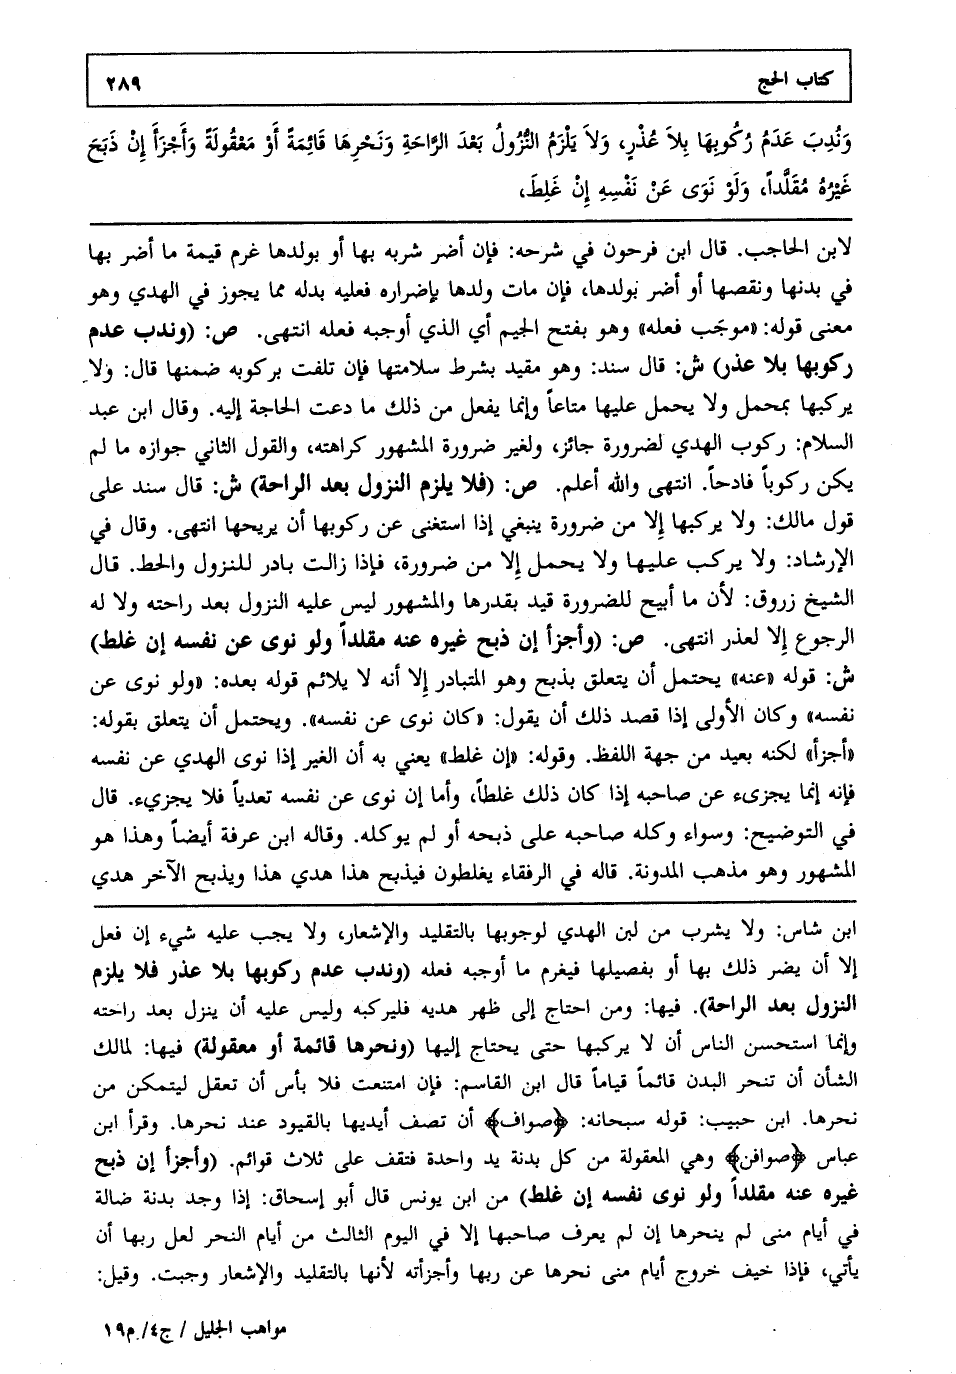 كتاب الحج
٢٨٩
وَنُدِبَ عَدَمُ رُكُوبِهَا بِلاَ عُذْرٍ، وَلاَ يَلْزَمُ النُّزُولُ بَعْدَ الرَّاحَةِ وَنَحْرِهَا قَائِمَةً أَوْ مَعْقُولَةً وَأَجْزَأَ إِنْ ذَبَحَ
غَيْرُهُ مُقَلَّداً، وَلَوْ نَوَى عَنْ نَفْسِهِ إِنْ غَلِطَ،
لابن الحاجب. قال ابن فرحون في شرحه: فإن أضر شربه بها أو بولدها غرم قيمة ما أضر بها
في بدنها ونقصها أو أضر بولدها، فإن مات ولدها بإضراره فعليه بدله مما يجوز في الهدي وهو
معنى قوله: «موجَب فعله» وهو بفتح الجيم أي الذي أوجبه فعله انتهى. ص: (وندب عدم
ركوبها بلا عذر) ش: قال سند: وهو مقيد بشرط سلامتها فإن تلفت بركوبه ضمنها قال: ولا
يركبها بمحمل ولا يحمل عليها متاعاً وإنما يفعل من ذلك ما دعت الحاجة إليه. وقال ابن عبد
السلام: ركوب الهدي لضرورة جائز، ولغير ضرورة المشهور كراهته، والقول الثاني جوازه ما لم
يكن ركوباً فادحاً. انتهى والله أعلم. ص: (فلا يلزم النزول بعد الراحة) ش: قال سند على
قول مالك: ولا يركبها إلا من ضرورة ينبغي إذا استغنى عن ركوبها أن يريحها انتهى. وقال في
الإرشاد: ولا يركب عليها ولا يحمل إلا من ضرورة، فإذا زالت بادر للنزول والحط. قال
الشيخ زروق: لأن ما أبيح للضرورة قيد بقدرها والمشهور ليس عليه النزول بعد راحته ولا له
الرجوع إلا لعذر انتهى. ص: (وأجزأ إن ذبح غيره عنه مقلداً ولو نوى عن نفسه إن غلط)
ش: قوله «عنه» يحتمل أن يتعلق بذبح وهو المتبادر إلا أنه لا يلائم قوله بعده: «ولو نوى عن
نفسه» وكان الأولى إذا قصد ذلك أن يقول: «كان نوى عن نفسه». ويحتمل أن يتعلق بقوله:
«أجزأ» لكنه بعيد من جهة اللفظ. وقوله: «إن غلط» يعني به أن الغير إذا نوى الهدي عن نفسه
فإنه إنما يجزىء عن صاحبه إذا كان ذلك غلطاً، وأما إن نوى عن نفسه تعدياً فلا يجزيء. قال
في التوضيح: وسواء وكله صاحبه على ذبحه أو لم يوكله. وقاله ابن عرفة أيضاً وهذا هو
المشهور وهو مذهب المدونة. قاله في الرفقاء يغلطون فيذبح هذا هدي هذا ويذبح الآخر هدي
ابن شاس: ولا يشرب من لبن الهدي لوجوبها بالتقليد والإشعار، ولا يجب عليه شيء إن فعل
إلا أن يضر ذلك بها أو بفصيلها فيغرم ما أوجبه فعله (وندب عدم ركوبها بلا عذر فلا يلزم
النزول بعد الراحة). فيها: ومن احتاج إلى ظهر هديه فليركبه وليس عليه أن ينزل بعد راحته
وإنما استحسن الناس أن لا يركبها حتى يحتاج إليها (ونحرها قائمة أو معقولة) فيها: لمالك
الشأن أن تنحر البدن قائماً قياماً قال ابن القاسم: فإن امتنعت فلا بأس أن تعقل ليتمكن من
نحرها. ابن حبيب: قوله سبحانه: ﴿صواف﴾ أن تصف أيديها بالقيود عند نحرها. وقرأ ابن
عباس ﴿صوافن﴾ وهي المعقولة من كل بدنة يد واحدة فتقف على ثلاث قوائم. (وأجزأ إن ذبح
غيره عنه مقلداً ولو نوى نفسه إن غلط) من ابن يونس قال أبو إسحاق: إذا وجد بدنة ضالة
في أيام منى لم ينحرها إن لم يعرف صاحبها إلا في اليوم الثالث من أيام النحر لعل ربها أن
يأتي، فإذا خيف خروج أيام منى نحرها عن ربها وأجزأته لأنها بالتقليد والإشعار وجبت. وقيل:
مواهب الجليل / ج٤/ م١٩